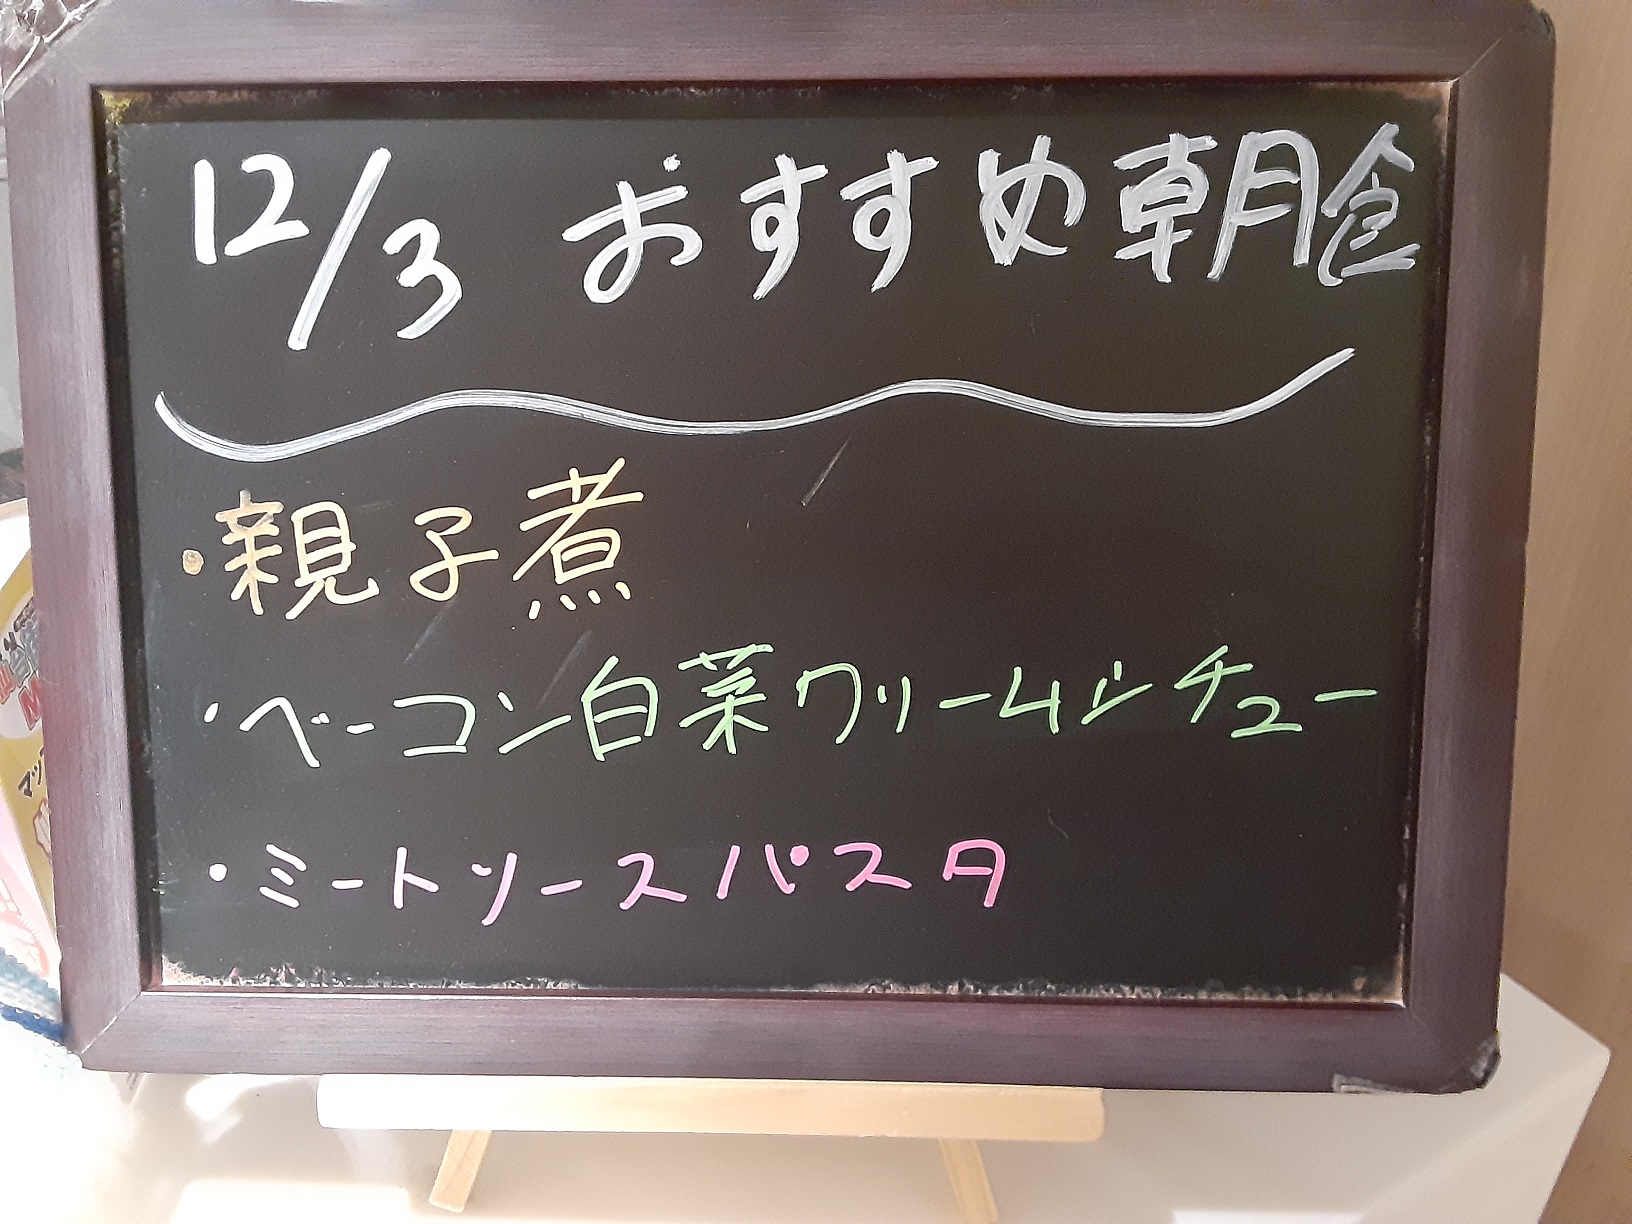 12/3 おすすめ朝食
・親子煮
・ベーコン白菜クリームシチュー
・ミートソースパスタ